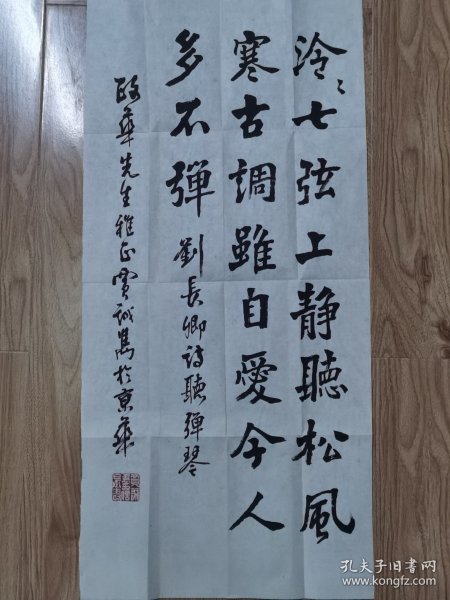 泠〻七弦上静聽松風
寒古調雖自愛今人
多不彈 劉長卿詩聽彈琴
政華先生雅正賈誠雋於京華
孔夫子旧书网
www.kongfz.com